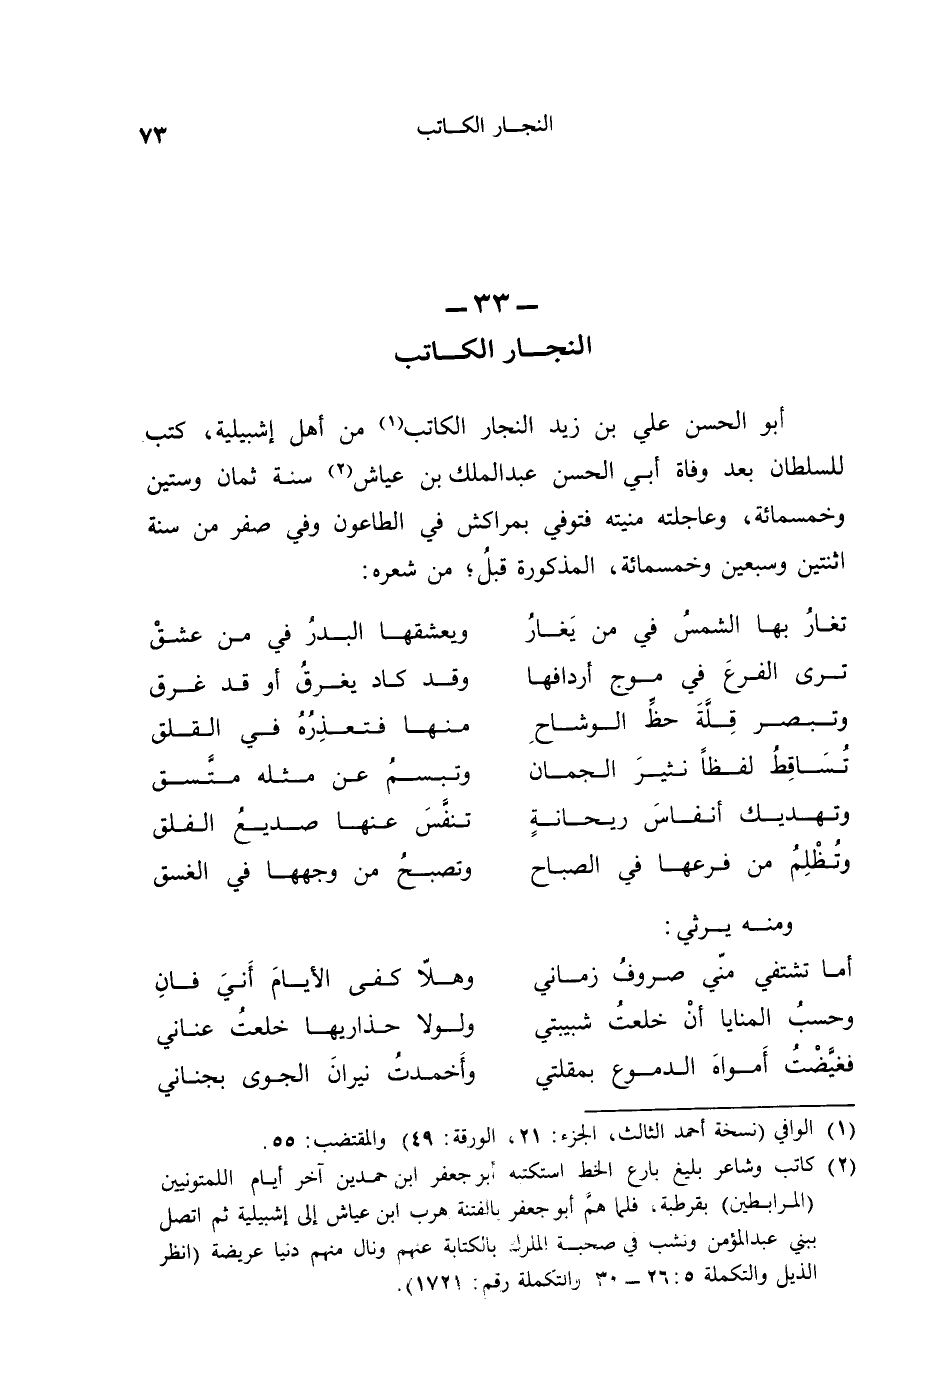 النجـار الكـاتب
٧٣
ـ ٣٣ ـ
النجـــار الكـــاتب
أبو الحسن علي بن زيد النجار الكاتب(١) من أهل إشبيلية، كتب
للسلطان بعد وفاة أبـي الحسن عبدالملك بن عياش(٢) سنـة ثمان وستين
وخمسمائة، وعاجلته منيته فتوفي بمراكش في الطاعون وفي صفر من سنة
اثنتين وسبعين وخمسمائة، المذكورة قبلُ؛ من شعره:
تغـارُ بهـا الشمسُ في من يَغـارُ ويعشقهـا البـدرُ في مـن عشقْ
تـرى الفـرعَ في مـوج أردافهـا وقـد كـاد يغـرقُ أو قـد غـرق
وتـبـصـر قِـلَّةَ حظِّ الـوشـاحِ منـهـا فـتـعـذِرُهُ فـي القـلق
تُسَـاقِطُ لفـظاً نثيـرَ الجمـان وتبـسـمُ عـن مـثـله متَّـسـق
وتـهـديـك أنـفـاسَ ريـحـانـةٍ تنفَّسَ عنهـا صـديـعُ الفـلق
وتُـظْلِمُ من فـرعهـا في الصباح وتصبـحُ من وجههـا في الغسق
ومنـه يـرثي:
أمـا تشتفي منّي صـروفُ زمـاني وهـلّا كـفـى الأيـامَ أَنـيَ فـانِ
وحسبُ المنايا أنْ خلعتُ شبيبتي ولـولا حـذاريهـا خلعتُ عنـاني
فغيَّضْتُ أمـواهَ الدمـوع بمقلتي وأَخمـدتُ نيرانَ الجـوى بجنـاني
(١) الوافي (نسخة أحمد الثالث، الجزء: ٢١، الورقة: ٤٩) والمقتضب: ٥٥.
(٢) كاتب وشاعر بليغ بارع الخط استكتبه أبو جعفر ابن حمدين آخر أيـام اللمتونيين
(المرابطين) بقرطبة، فلما همَّ أبو جعفر بالفتنة هرب ابن عياش إلى إشبيلية ثم اتصل
ببني عبدالمؤمن ونشب في صحبة الملوك بالكتابة عنهم ونال منهم دنيا عريضة (انظر
الذيل والتكملة ٥: ٢٦ ـ ٣٠ والتكملة رقم: ١٧٢١).